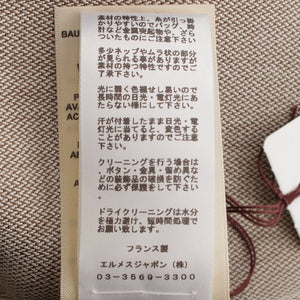 素材の特性上、糸が引っ掛
かりやすいのでバッグ、時
計など金属突起物や、ざら
ついたものにご注意下さい
多少ネップやムラ状の部分
が見られる事がありますが
素材の持つ特性ですのでご
了承下さい。
光に弱く色褪せし易いので
長時間の日光・電灯光にさ
らさないようにご注意下さ
い。
汗が付着したまま日光・電
灯光に当てると、変色する
ことがありますのでご注意
下さい。
クリーニングを行う場合は
、ボタン・金具・留め具な
どの装飾品の破損を防ぐた
めに必ず保護をして下さい
。
ドライクリーニングは水分
を極力避け、短時間処理で
お願いします。
フランス製
エルメスジャポン（株）
03-3569-3300
BAU